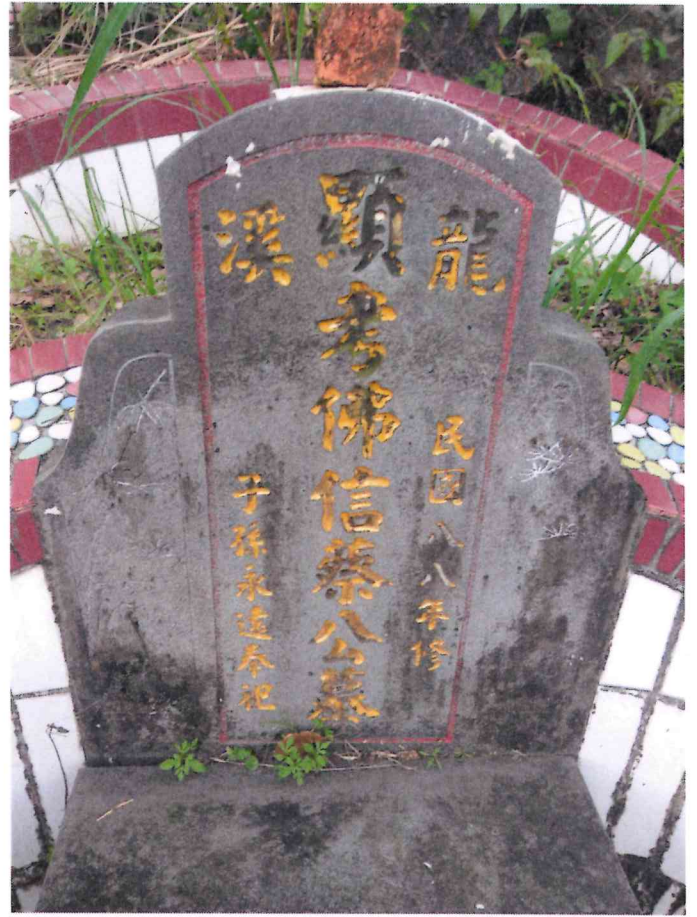 龍溪
民國八八年修
顯考佛信蔡公墓
子孫永遠奉祀